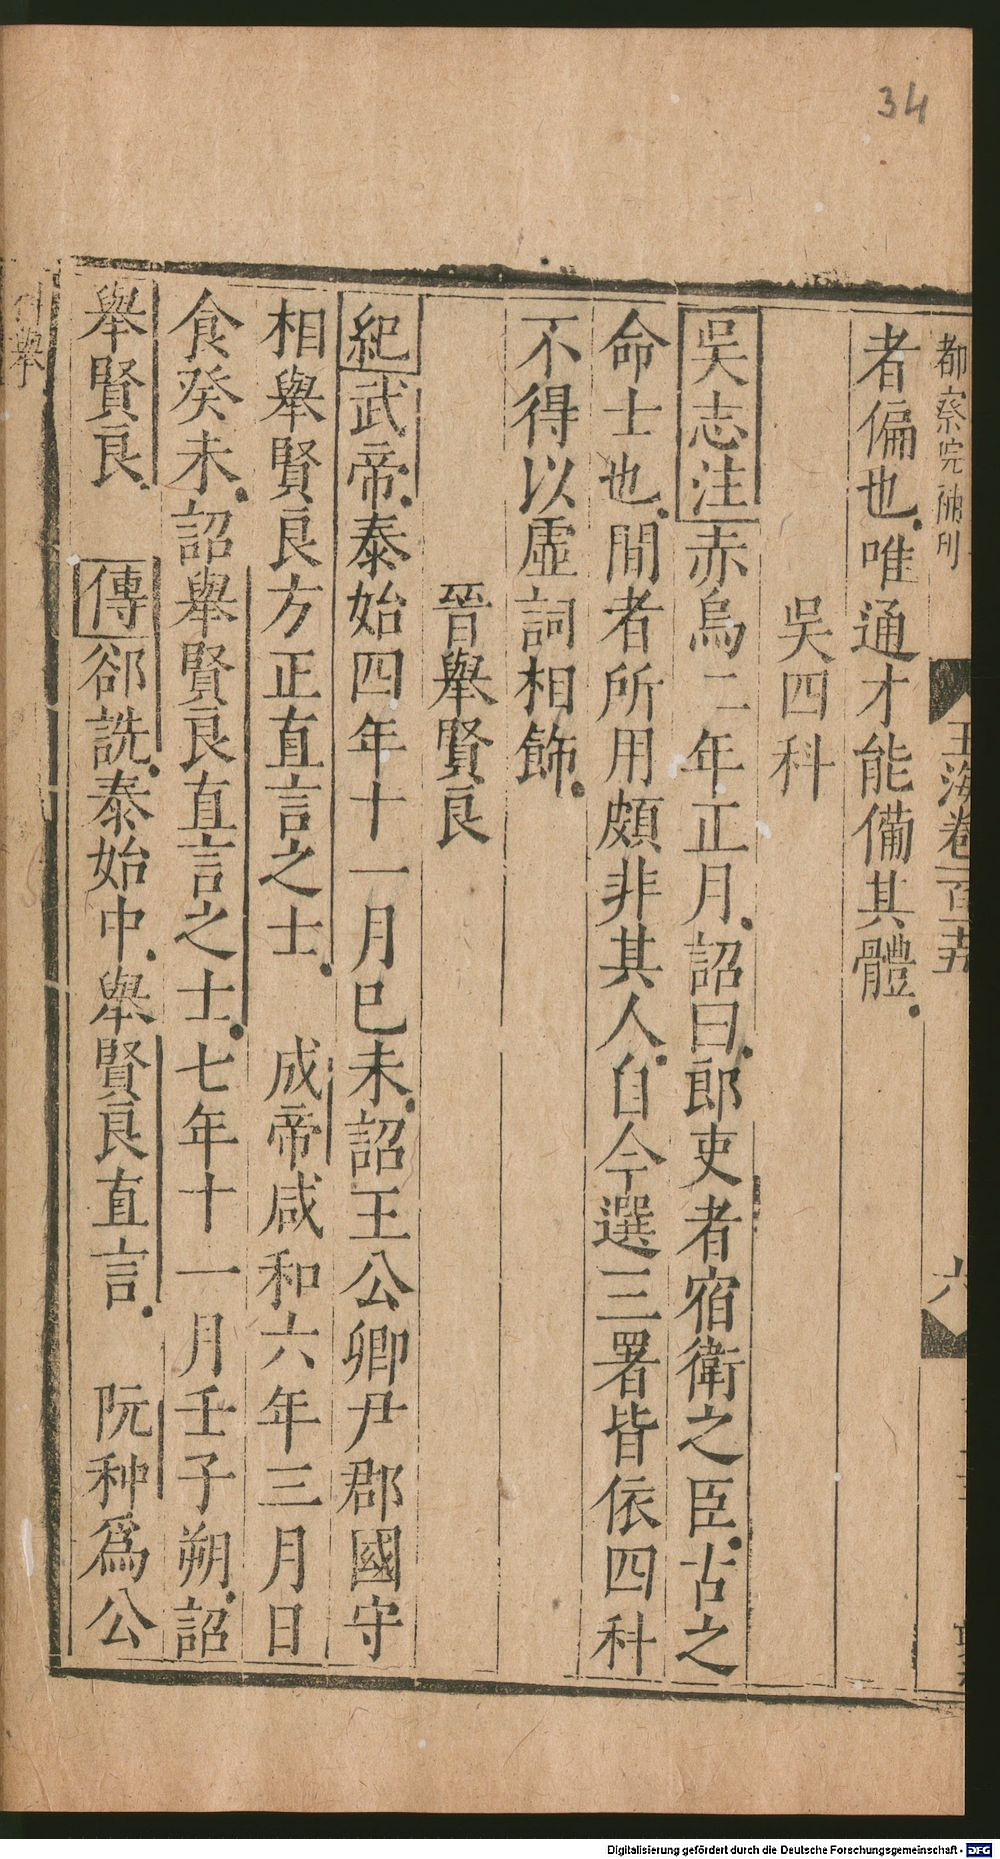 34
都察院補刊
玉海卷一百十五
六
者偏也唯通才能備其體
吳四科
吳志注赤烏二年正月詔曰郎吏者宿衛之臣古之
命士也間者所用頗非其人自今選三署皆依四科
不得以虛詞相飾
晉舉賢良
紀武帝泰始四年十一月巳未詔王公卿尹郡國守
相舉賢良方正直言之士 成帝咸和六年三月日
食癸未詔舉賢良直言之士七年十一月壬子朔詔
舉賢良 傳郤詵泰始中舉賢良直言 阮种爲公
Digitalisierung gefördert durch die Deutsche Forschungsgemeinschaft - DFG